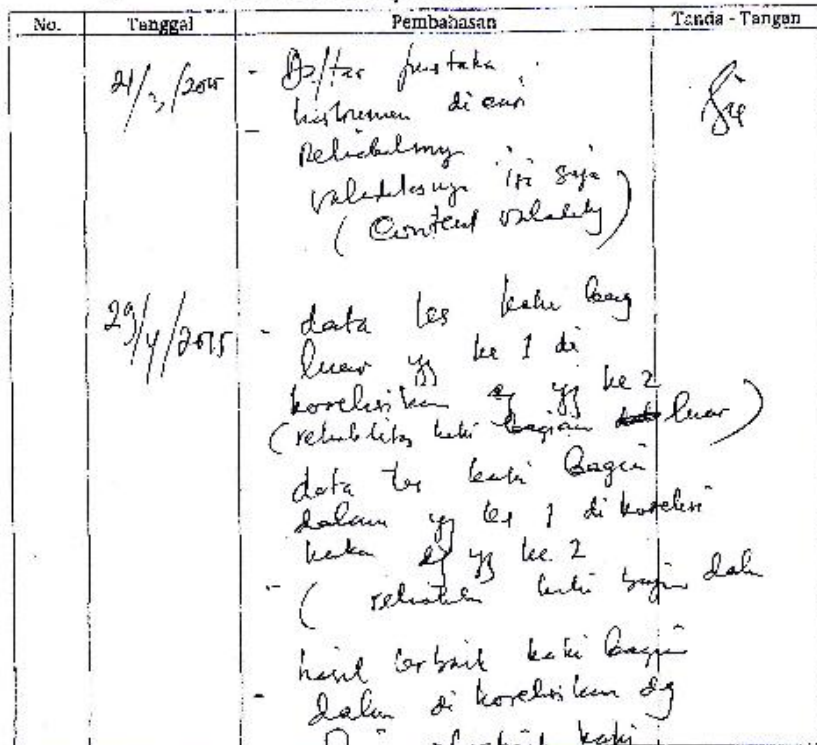 No. Tanggal Pembahasan Tanda - Tangan
21/3/2015 - Daftar pustaka
- Instrumen di cari
Reliabilnya
validitasnya isi saja
( Content validity )
29/4/2015 - data tes kaki bag
luar yg ke 1 di
korelasikan dg yg ke 2
( reliabilitas kaki bagian luar )
data tes kaki bagian
dalam yg tes 1 di korelasi
kakan dg yg ke 2
- ( reliabilitas kaki bagian dalam
- hasil terbaik kaki bagian
dalam di korelasikan dg
terbaik kaki